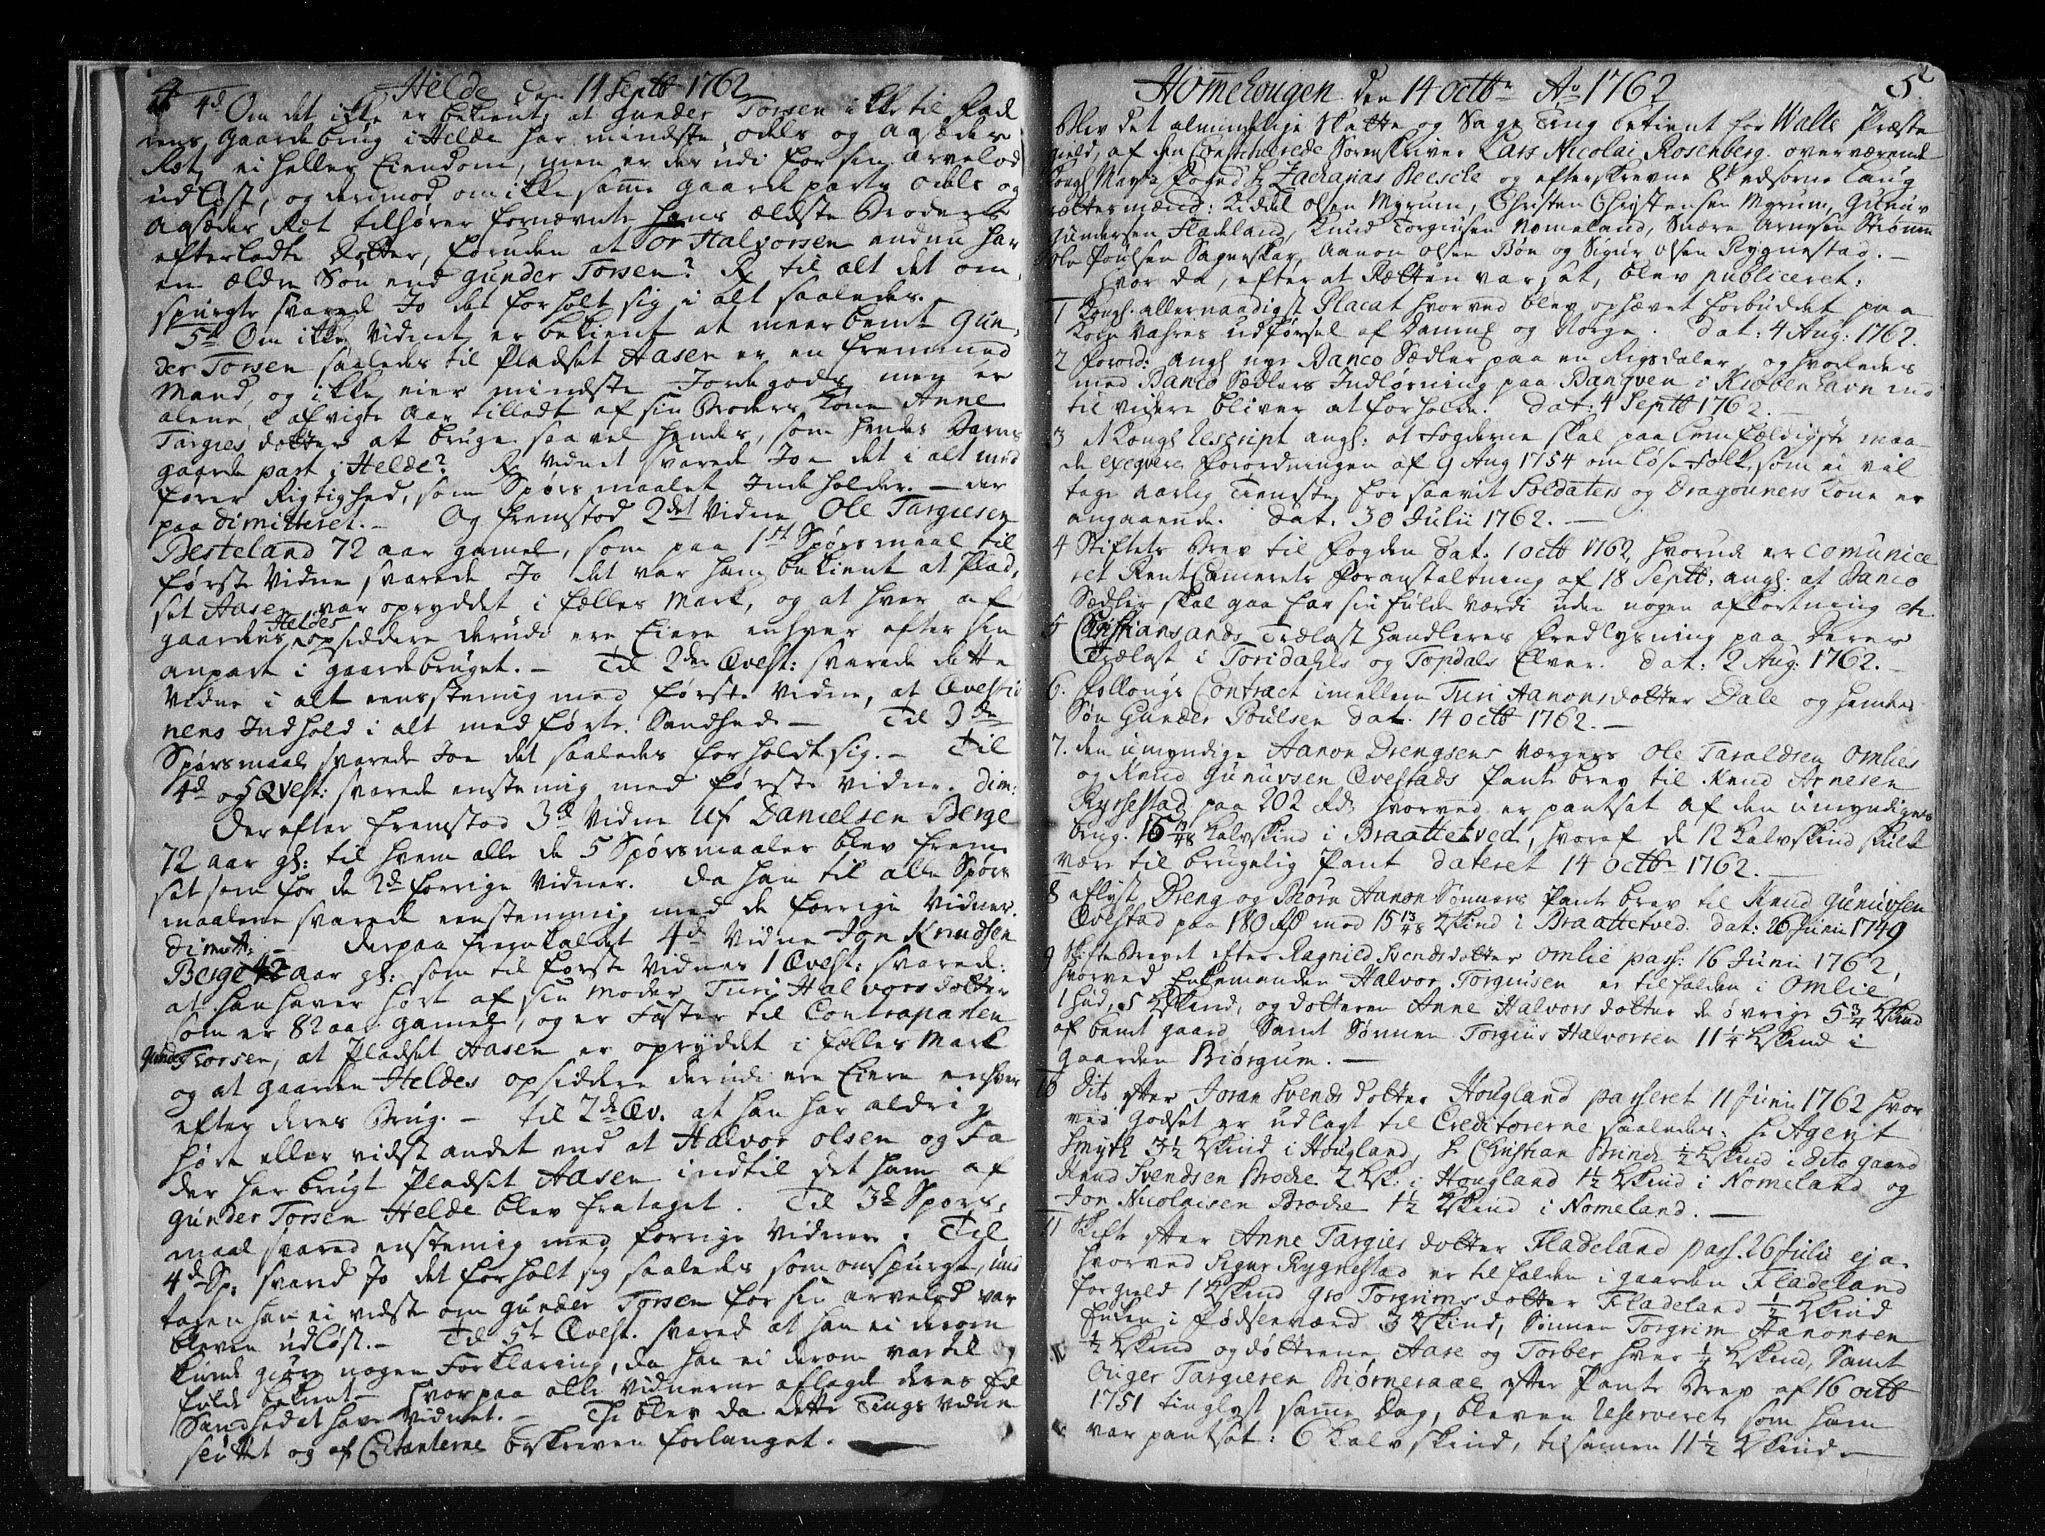 4
Helde den 14 Septb 1762
4d Om det ikke er bekient, at Gunder Torsen ikke til Fad
rens gaardebrug i Helde har mindste odels og aasædes
Ret, ei heller Eiendom, men er der udi for sin arvelod
udløst, og derimod om ikke samme gaarde parts odels og
aasædes Ret tilhører fornævnte hans ældste Broders
efterladte dotter, formden at Or Halvorsen endnu har
en ældre Søn end Gunder Torsen? Rx til alt det om„
spurgte svarede Jo det forholt sig i alt saaledes.
5t Om ikke Vidnet er bekient at meerbemte Gun„
der Torsen saaledes til Pladset Aasen er en fremmed
Mand, og ikke eier mindste Jordegods, men er
alene afvigte Aar tilladt af sin Broders Kone Anne
Targies dotter at bruge saa vel hendes, som hendes Barns
gaarde part i Helde? Rx Vidnet svarede Joe det i alt med
fører Rigtighed, som Spørsmaalet Indeholder. — der
paa dimitteret. — Og fremstod 2det Vidne Ole Targiesen
Besteland 72 aar gamel, som paa 1st Spørsmaal til
første Vidne svarede Jo det var ham bekient at Plad„
set Aasen var opryddet i fælles Mark, og at hver af
gaardens Heldes opsiddere derudi ere Eiere enhver efter sin
anpart i gaardebruget. — Til 2den Qvest: svarede dette
Vidne i alt eenstemig med første Vidne, at Qvestio
nens Indhold i alt medførte Sandhed — Til 3de
Spørsmaal svarede Joe det saaledes forholdt sig. — Til
4d og 5 Qvest: svarede enstemig med første Vidne. dim:
Derefter fremstod 3d Vidne Uf Danielsen Berge
72 aar gl: til hvem alle de 5 Spørsmaaler blev frem
sat som for de 2de forrige Vidner. Da han til alle Spørs
maalene svarede eenstemmig med de forrige Vidner.
dimitt: — derpaa fremkaldet 4d Vidne Jon Knudsen
Berge 42 aar gl: som til første Vidnes 1 Qvest: svarede:
at han haver hørt af sin Moder Turi Halvors dotter
som er 82 aar gamel, og er Faster til Contraparten
Gunder Torsen, at Pladset Aasen er opryddet i fælles Mark
og at gaarden Heldes opsiddere derudi ere Eiere enhver
efter deres Brug. — til 2de Qv. at han har aldrig
hørt eller vidst andet end at Halvor Olsen og Fa
der har brugt Pladset Aasen indtil det ham af
Gunder Torsen Helde blev frataget. Til 3de Spørs„
maal svared enstemig med forrige Vidner. Til
4d Sp: svared Jo det forholt sig saaledes som omspurgt, und
tagen han ei vidste om Gunder Torsen for sin arvelod var
bleven udløst. — Til 5t Qvest. svared at han ei derom
kunde giøre nogen Forklaring, da han ei derom var til
fulde bekient — hvorpaa alle Vidnerne aflagde deres Ed
Sandhed at have Vidnet. — Thi blev da dette Tings Vidne
sluttet og af Citanterne beskreven forlanget. —
5
Hommehougen den 14 octbr Ao 1762
Blev det almindelige Skatte og Sage Ting betient for Walle Præste
gield, af den Constituerede Sorenskriver Lars Nicolai Rosenberg overværende
Kongl May: Foged Hr Zacharias Beesche og efterskrevne 8 edsorne Laug
rettesmænd: Kiddel Olsen Myrum, Christen Christensen Myrum, Gunuv
Gundersen Fladeland, Knud Torgiusen Nomeland, Svære Arnesen Strømm
Ole Poulsen Sagneskar, Aanon Olsen Bøe og Sigur Olsen Rygnestad. —
hvor da, efter at Retten var sat, blev publiceret:
1 Kongl: allernaadigst Placat hvorved blev ophævet forbuddet paa
Korn Vahres udførsel af Danmk og Norge. dat: 4 Aug: 1762.
2 Forord: angl nye Banco Sædler paa en Rigsdaler, og hvorledes
med Banco Sædlers Indløsning paa Banqven i Kiøbenhavn ind
til videre bliver at forholde. dat: 4 Septb 1762. —
3 et Kongl Rescript angl: at fogderne skal paa Lemfældigste maa
de exeqvere forordningen af 9 Aug 1754 om løse Folk, som ei vil
tage aarlig Tieneste, for saavit Soldaters og Dragouners Kone er
angaaende. dat. 30 Julii 1762. —
4 Stiftets Brev til Fogden dat. 1 octb 1762, hvorudi er comunice
ret RentCamerets foranstaltning af 18 Septb: angl: at Banco
Sædler skal gaa for sin fulde værdi uden nogen afkortning etc.
5 Christiansands Trælast handleres fredlysning paa deres
Trælast i Torridahls og Topdals Elver. dat: 2 Aug: 1762. —
6. Follougs Contract imellem Turi Aanons dotter Dale og hendes
Søn Gunder Poulsen dat. 14 octb 1762. —
7. den umyndige Aanon Drengsens Værgers Ole Taraldsen Omlies
og Knud Gunuvsen Qvestads Pante brev til Knud Arnesen
Rygnestad paa 202 Rd, hvorved er pantsat af den umyndiges
brug. 16 Kalvskind i Braattetved, hvoraf de 12 Kalvskind skulde
være til brugelig Pant dateret 14 octbr 1762. —
8 aflyst Dreng og Biørn Aanon Sønners Pante brev til Knud Gunuvsen
Qvestad paa 180 Rd med 15 13/48 Kskind i Braattetved. dat: 26 Junii 1749
9 Skifte Brevet efter Ragnild Svends dotter Omlie pass: 16 Junii 1762,
hvorved Enkemanden Halvor Torgiusen er tilfalden i Omlie
1 hud, 5 Kskind, og dotteren Anne Halvors dotter de øvrige 5 3/4 Kskind
af bemte gaard Samt Sønnen Torgius Halvorsen 11 1/4 Kskind i
gaarden Biørgum. —
10 dito efter Joran Svends dotter Hougland passeret 11 Junii 1762 hvor
ved Godset er udlagt til Creditorerne saaledes. Hr Agent
Smith 3 1/2 Kskind i Hougland, Hr Christian Brinch 1/2 Kskind i dito gaard
Knud Svendsen Brocke 2 Ksk: i Hougland 1 1/2 Kskind i Nomeland og
Jon Nicolaisen Brocke 1 1/2 Kskind i Nomeland. —
11 Skifte efter Anne Targies dotter Fladeland pass. 26 Julii eja.
hvorved Sigur Rygnestad er tilfalden i gaarden Fladeland
for gield 1 Kskind Gro Torgrims dotter Fladeland 1/2 Kskind
Enken i fødsenværd 3 Kskind, Sønnen Torgrim Aanonsen
1/2 Kskind og døttrene Aase og Torber hver 1/4 Kskind, Samt
Ouger Targiesen Biørneraae efter Pante Brev af 16 octb
1751 tinglyst samme dag, bleven reserveret som ham
var pantsat: 6 Kalvskind, tilsamen 11 1/2 Kskind. —